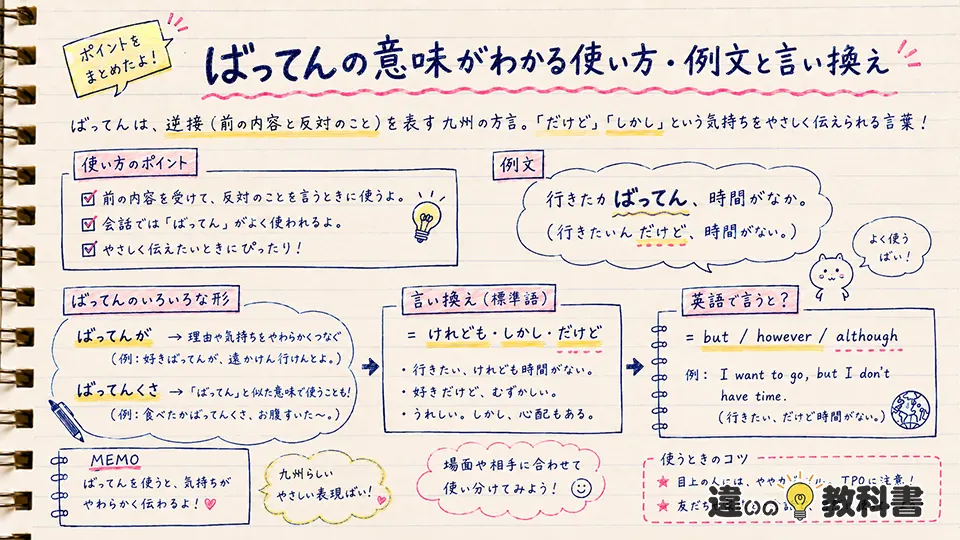 ポイントを
まとめたよ！
ばってんの意味がわかる使い方・例文と言い換え
ばってんは、逆接（前の内容と反対のこと）を表す九州の方言。「だけど」「しかし」という気持ちをやさしく伝えられる言葉！
使い方のポイント
前の内容を受けて、反対のことを言うときに使うよ。
会話では「ばってん」がよく使われるよ。
やさしく伝えたいときにぴったり！
例文
行きたか ばってん、時間がなか。
（行きたいんだけど、時間がない。）
よく使う
ばい！
ばってんのいろいろな形
ばってんが → 理由や気持ちをやわらかくつなぐ
（例：好きばってんが、遠かけん行けんとよ。）
ばってんくさ → 「ばってん」と似た意味で使うことも！
（例：食べたかばってんくさ、お腹すいた〜。）
言い換え（標準語）
= けれども・しかし・だけど
・行きたい、けれども時間がない。
・好きだけど、むずかしい。
・うれしい。しかし、心配もある。
英語で言うと？
= but / however / although
例： I want to go, but I don't
have time.
（行きたい、だけど時間がない。）
MEMO
ばってんを使うと、気持ちが
やわらかく伝わるよ！
九州らしい
やさしい表現ばい！
場面や相手に合わせて
使い分けてみよう！
使うときのコツ
★ 目上の人には、ややカ TPOに注意！
★ 友だち
違いの教科書